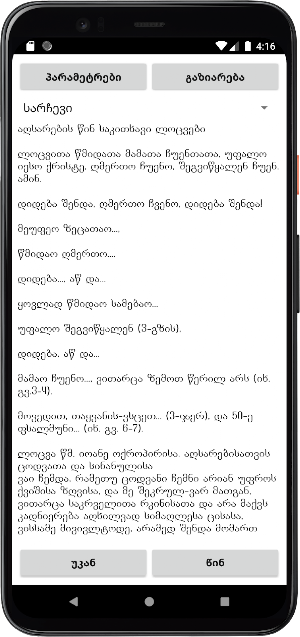 4:16
პარამეტრები
გაზიარება
სარჩევი
აღსარების წინ საკითხავი ლოცვები
ლოცვითა წმიდათა მამათა ჩუენთათა, უფალო
იესო ქრისტე, ღმერთო ჩუენო, შეგვიწყალენ ჩუენ.
ამინ.
დიდება შენდა, ღმერთო ჩვენო, დიდება შენდა!
მეუფეო ზეცათაო...,
წმიდაო ღმერთო...,
დიდება..., აწ და...
ყოვლად წმიდაო სამებაო...
უფალო შეგვიწყალენ (3-გზის).
დიდება, აწ და...
მამაო ჩუენო..., ვითარცა ზემოთ წერილ არს (იხ.
გვ.3-4).
მოვედით, თაყვანის-ვსცეთ... (3-ჯერ), და 50-ე
ფსალმუნი... (იხ. გვ. 6-7).
ლოცვა წმ. იოანე ოქროპირისა, აღსარებისათვის
ცოდვათა და სინანულისა
ვაი ჩემდა, რამეთუ ცოდვანი ჩემნი არიან უფროს
ქვიშისა ზღვისა, და მე შეკრულ-ვარ მათგან,
ვითარცა საკრველითა რკინისათა და არა მაქვს
კადნიერება აღხილვად სიმაღლესა ცისასა,
ვისსამე მივივლტოდე, არამედ შენდა მომართ
უკან
წინ